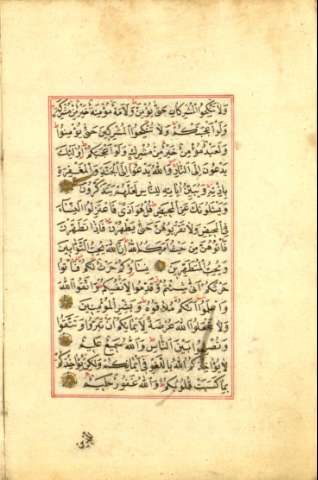 وَلَا تَنْكِحُوا الْمُشْرِكَاتِ حَتَّى يُؤْمِنَّ وَلَأَمَةٌ مُؤْمِنَةٌ خَيْرٌ مِنْ مُشْرِكَةٍ
وَلَوْ أَعْجَبَتْكُمْ وَلَا تُنْكِحُوا الْمُشْرِكِينَ حَتَّى يُؤْمِنُوا
وَلَعَبْدٌ مُؤْمِنٌ خَيْرٌ مِنْ مُشْرِكٍ وَلَوْ أَعْجَبَكُمْ أُولَئِكَ
يَدْعُونَ إِلَى النَّارِ وَاللَّهُ يَدْعُوا إِلَى الْجَنَّةِ وَالْمَغْفِرَةِ
بِإِذْنِهِ وَيُبَيِّنُ آيَاتِهِ لِلنَّاسِ لَعَلَّهُمْ يَتَذَكَّرُونَ
وَيَسْأَلُونَكَ عَنِ الْمَحِيضِ قُلْ هُوَ أَذًى فَاعْتَزِلُوا النِّسَاءَ
فِي الْمَحِيضِ وَلَا تَقْرَبُوهُنَّ حَتَّى يَطْهُرْنَ فَإِذَا تَطَهَّرْنَ
فَأْتُوهُنَّ مِنْ حَيْثُ أَمَرَكُمُ اللَّهُ إِنَّ اللَّهَ يُحِبُّ التَّوَّابِينَ
وَيُحِبُّ الْمُتَطَهِّرِينَ نِسَاؤُكُمْ حَرْثٌ لَكُمْ فَأْتُوا
حَرْثَكُمْ أَنَّى شِئْتُمْ وَقَدِّمُوا لِأَنْفُسِكُمْ وَاتَّقُوا اللَّهَ
وَاعْلَمُوا أَنَّكُمْ مُلَاقُوهُ وَبَشِّرِ الْمُؤْمِنِينَ
وَلَا تَجْعَلُوا اللَّهَ عُرْضَةً لِأَيْمَانِكُمْ أَنْ تَبَرُّوا وَتَتَّقُوا
وَتُصْلِحُوا بَيْنَ النَّاسِ وَاللَّهُ سَمِيعٌ عَلِيمٌ
لَا يُؤَاخِذُكُمُ اللَّهُ بِاللَّغْوِ فِي أَيْمَانِكُمْ وَلَكِنْ يُؤَاخِذُكُمْ
بِمَا كَسَبَتْ قُلُوبُكُمْ وَاللَّهُ غَفُورٌ حَلِيمٌ